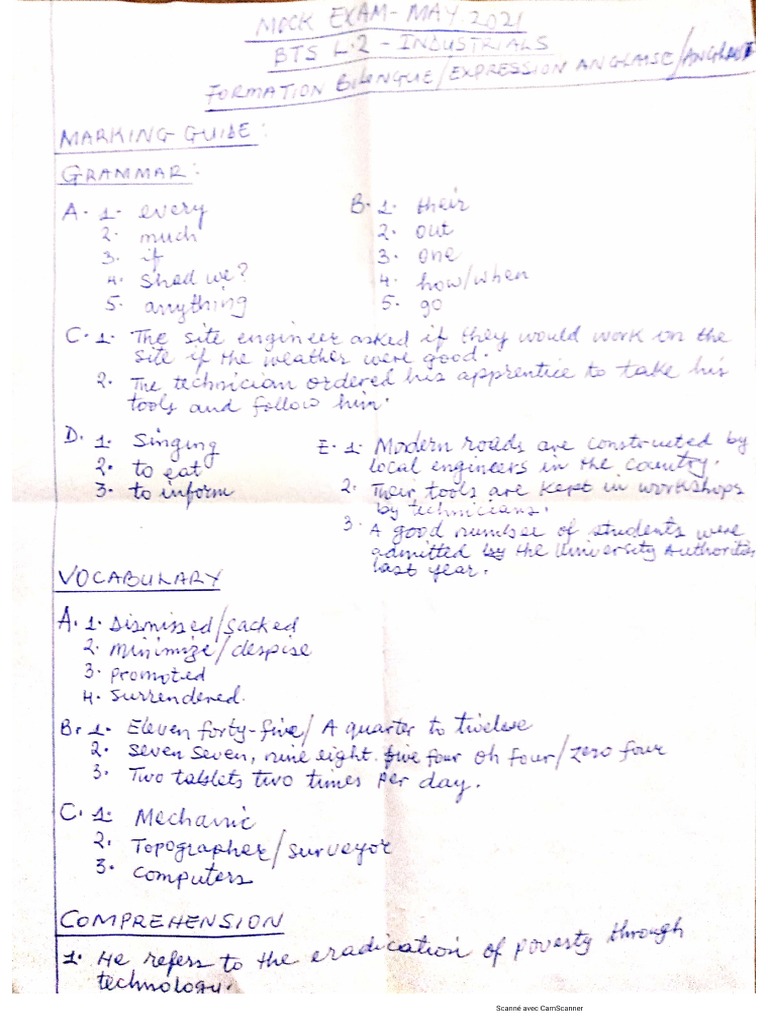 MOCK EXAM - MAY 2021
BTS L.2 - INDUSTRIALS
FORMATION BILINGUE/EXPRESSION ANGLAISE/ANGLAIS
MARKING GUIDE:
GRAMMAR:
A. 1. every
2. much
3. if
4. shad we?
5. anything
B. 1. their
2. out
3. one
4. how/when
5. go
C. 1. The site engineer asked if they would work on the
site if the weather were good.
2. The technician ordered his apprentice to take his
tools and follow him.
D. 1. Singing
2. to eat
3. to inform
E. 1. Modern roads are constructed by
local engineers in the country.
2. Their tools are kept in workshops
by technicians.
3. A good number of students were
admitted by the University Authorities
last year.
VOCABULARY
A. 1. Dismissed/sacked
2. minimize/despise
3. promoted
4. surrendered.
B. 1. Eleven forty-five/ A quarter to twelve
2. seven seven, nine eight. five four oh four/zero four
3. Two tablets two times per day.
C. 1. Mechanic
2. Topographer/surveyor
3. computers
COMPREHENSION
1. He refers to the eradication of poverty through
technology.
Scanné avec CamScanner